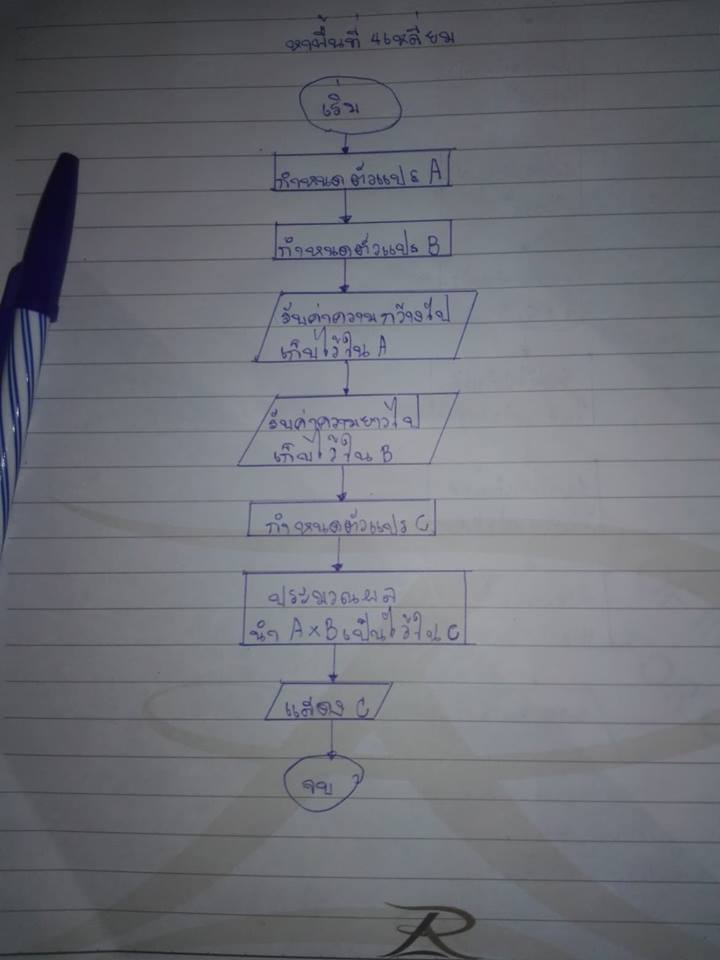 หาพื้นที่ 4เหลี่ยม
เริ่ม
กำหนดตัวแปร A
กำหนดตัวแปร B
รับค่าความกว้างไป
เก็บไว้ใน A
รับค่าความยาวไป
เก็บไว้ใน B
กำหนดตัวแปร C
ประมวณผล
นำ A×B เป็นไว้ใน C
แสดง C
จบ
R